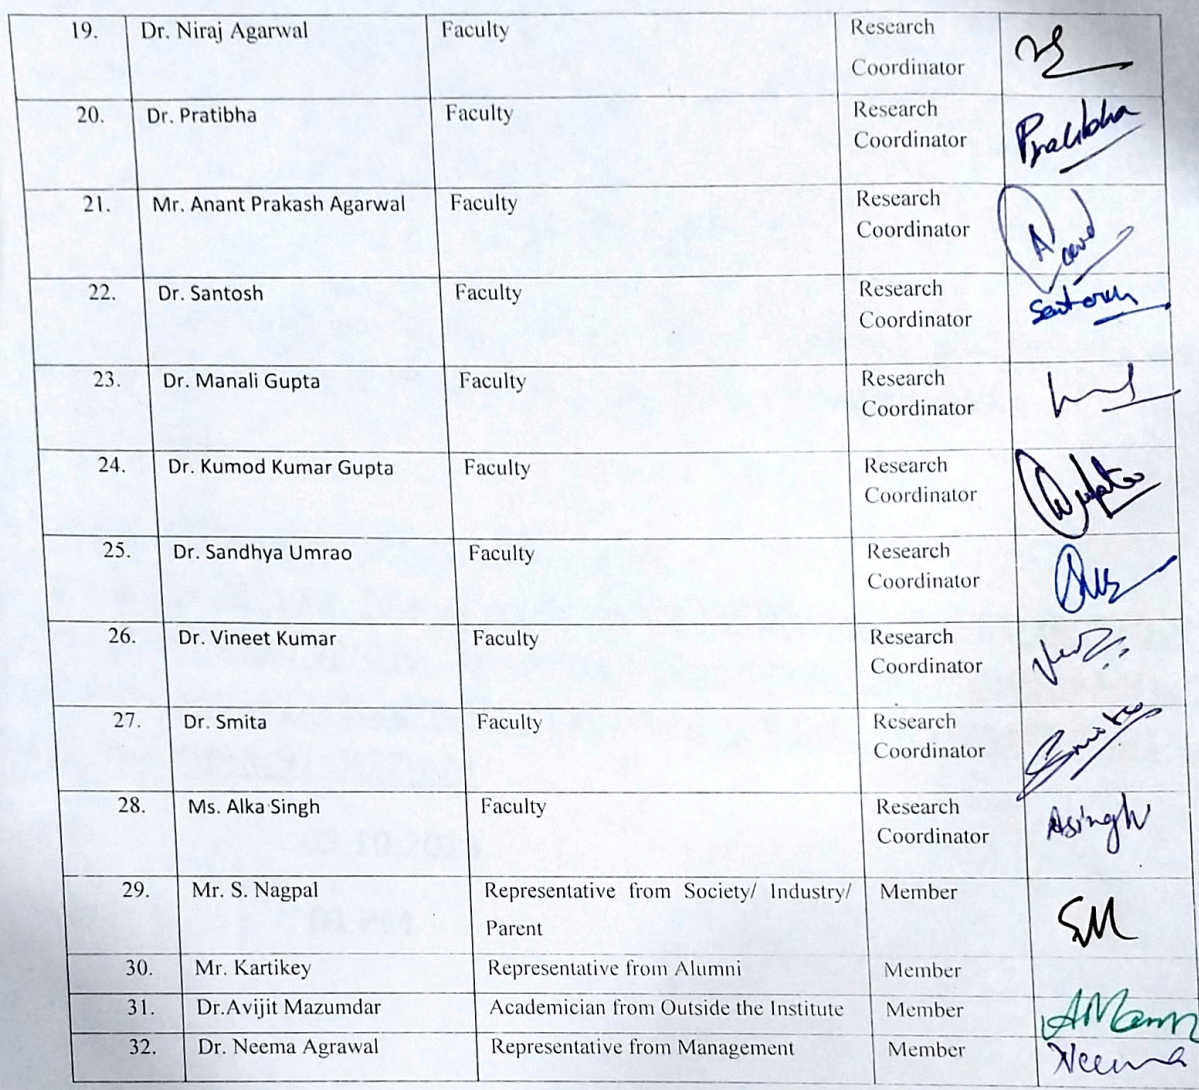 19. Dr. Niraj Agarwal Faculty Research
Coordinator
20. Dr. Pratibha Faculty Research
Coordinator Pratibha
21. Mr. Anant Prakash Agarwal Faculty Research
Coordinator
22. Dr. Santosh Faculty Research
Coordinator Santosh
23. Dr. Manali Gupta Faculty Research
Coordinator
24. Dr. Kumod Kumar Gupta Faculty Research
Coordinator
25. Dr. Sandhya Umrao Faculty Research
Coordinator
26. Dr. Vineet Kumar Faculty Research
Coordinator
27. Dr. Smita Faculty Research
Coordinator Smita
28. Ms. Alka Singh Faculty Research
Coordinator Asingh
29. Mr. S. Nagpal Representative from Society/ Industry/ Member
Parent
30. Mr. Kartikey Representative from Alumni Member
31. Dr.Avijit Mazumdar Academician from Outside the Institute Member
32. Dr. Neema Agrawal Representative from Management Member Neema